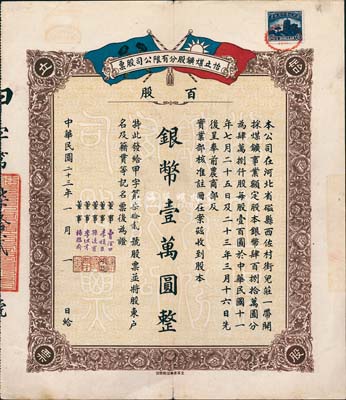 怡立煤礦股分有限公司股票
百股
本公司在河北省磁縣西佐村街兒莊一帶開
採煤礦事業額定股本銀幣肆百捌拾萬圓分
為肆萬捌仟股每股壹百圓於中華民國十一
年七月二十五日及二十三年三月十六日先
後呈奉前農商部及
實業部核准註冊在案茲收到股本
銀幣壹萬圓整
特此發給甲字第 號股票並將股東戶
名及籍貫等記名票後為證
董事
董事
董事
董事
中華民國二十三年 月 日給